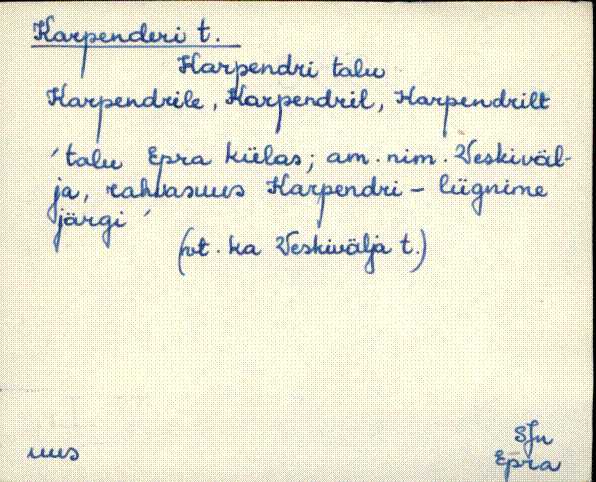 Karpenderi t.
Karpendri talu
Karpendrile, Karpendril, Karpendrilt
'talu Epra külas; am. nim. Veskiväl-
ja, rahvasuus Karpendri - liignime
järgi'
(vt. ka Veskivälja t.)
uus
SJn
Epra